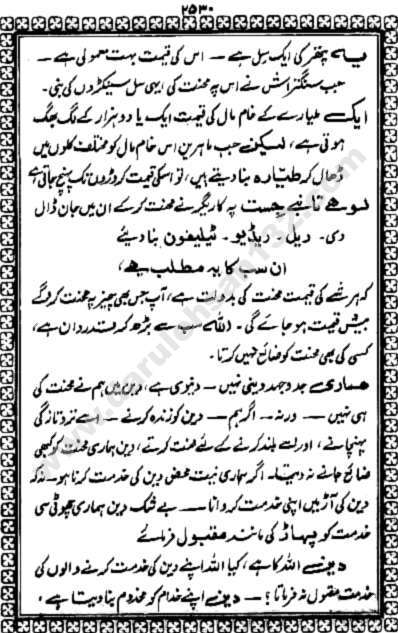 ۲۵۳۰
یہ پتھر کی ایک سِل ہے — اس کی قیمت بہت معمولی ہے —
جب سنگتراش نے اس پہ محنت کی ایہی سل سینکڑوں کی بنی۔
ایک طیارے کے خام مال کی قیمت ایک یا دو ہزار کے لگ بھگ
ہوتی ہے، لیکن جب ماہرین اس خام مال کو مختلف کلوں میں
ڈھال کر طیارہ بنا دیتے ہیں، تو اسکی قیمت کروڑوں تک پہنچ جاتی ہے
لوہے تانبے جست پہ کاریگر نے محنت کرکے ان میں جان ڈال
دی۔ ریل۔ ریڈیو۔ ٹیلیفون بنا دیئے
ان سب کا یہ مطلب ہے،
کہ ہر شے کی قیمت محنت کی بدولت ہے، آپ جس بھی چیز پہ محنت کرو گے
بیش قیمت ہو جائے گی۔ اللہ سب سے بڑھ کر قدردان ہے،
کسی کی بھی محنت کو ضائع نہیں کرتا۔
ہماری جدوجہد دینی نہیں — دنیوی ہے، دین میں ہم نے محنت کی
ہی نہیں — ورنہ — اگر ہم — دین کو زندہ کرنے — اسے تروتازگی
پہنچانے، اور اسے بلند کرنے کے لئے محنت کرتے، دین ہماری محنت کو کبھی
ضائع جانے نہ دیتا۔ اگر ہماری نیت محض دین کی خدمت کرنا ہو۔ نہ کہ
دین کی آڑ میں اپنی خدمت کروانا — بے شک دین ہماری چھوٹی سی
خدمت کو پہاڑ کی مانند مقبول فرمائے
دین اللہ کا ہے، کیا اللہ اپنے دین کی خدمت کرنے والوں کی
خدمت مقبول نہ فرماتا؟ — دین اپنے خدام کو مخدوم بنا دیتا ہے،